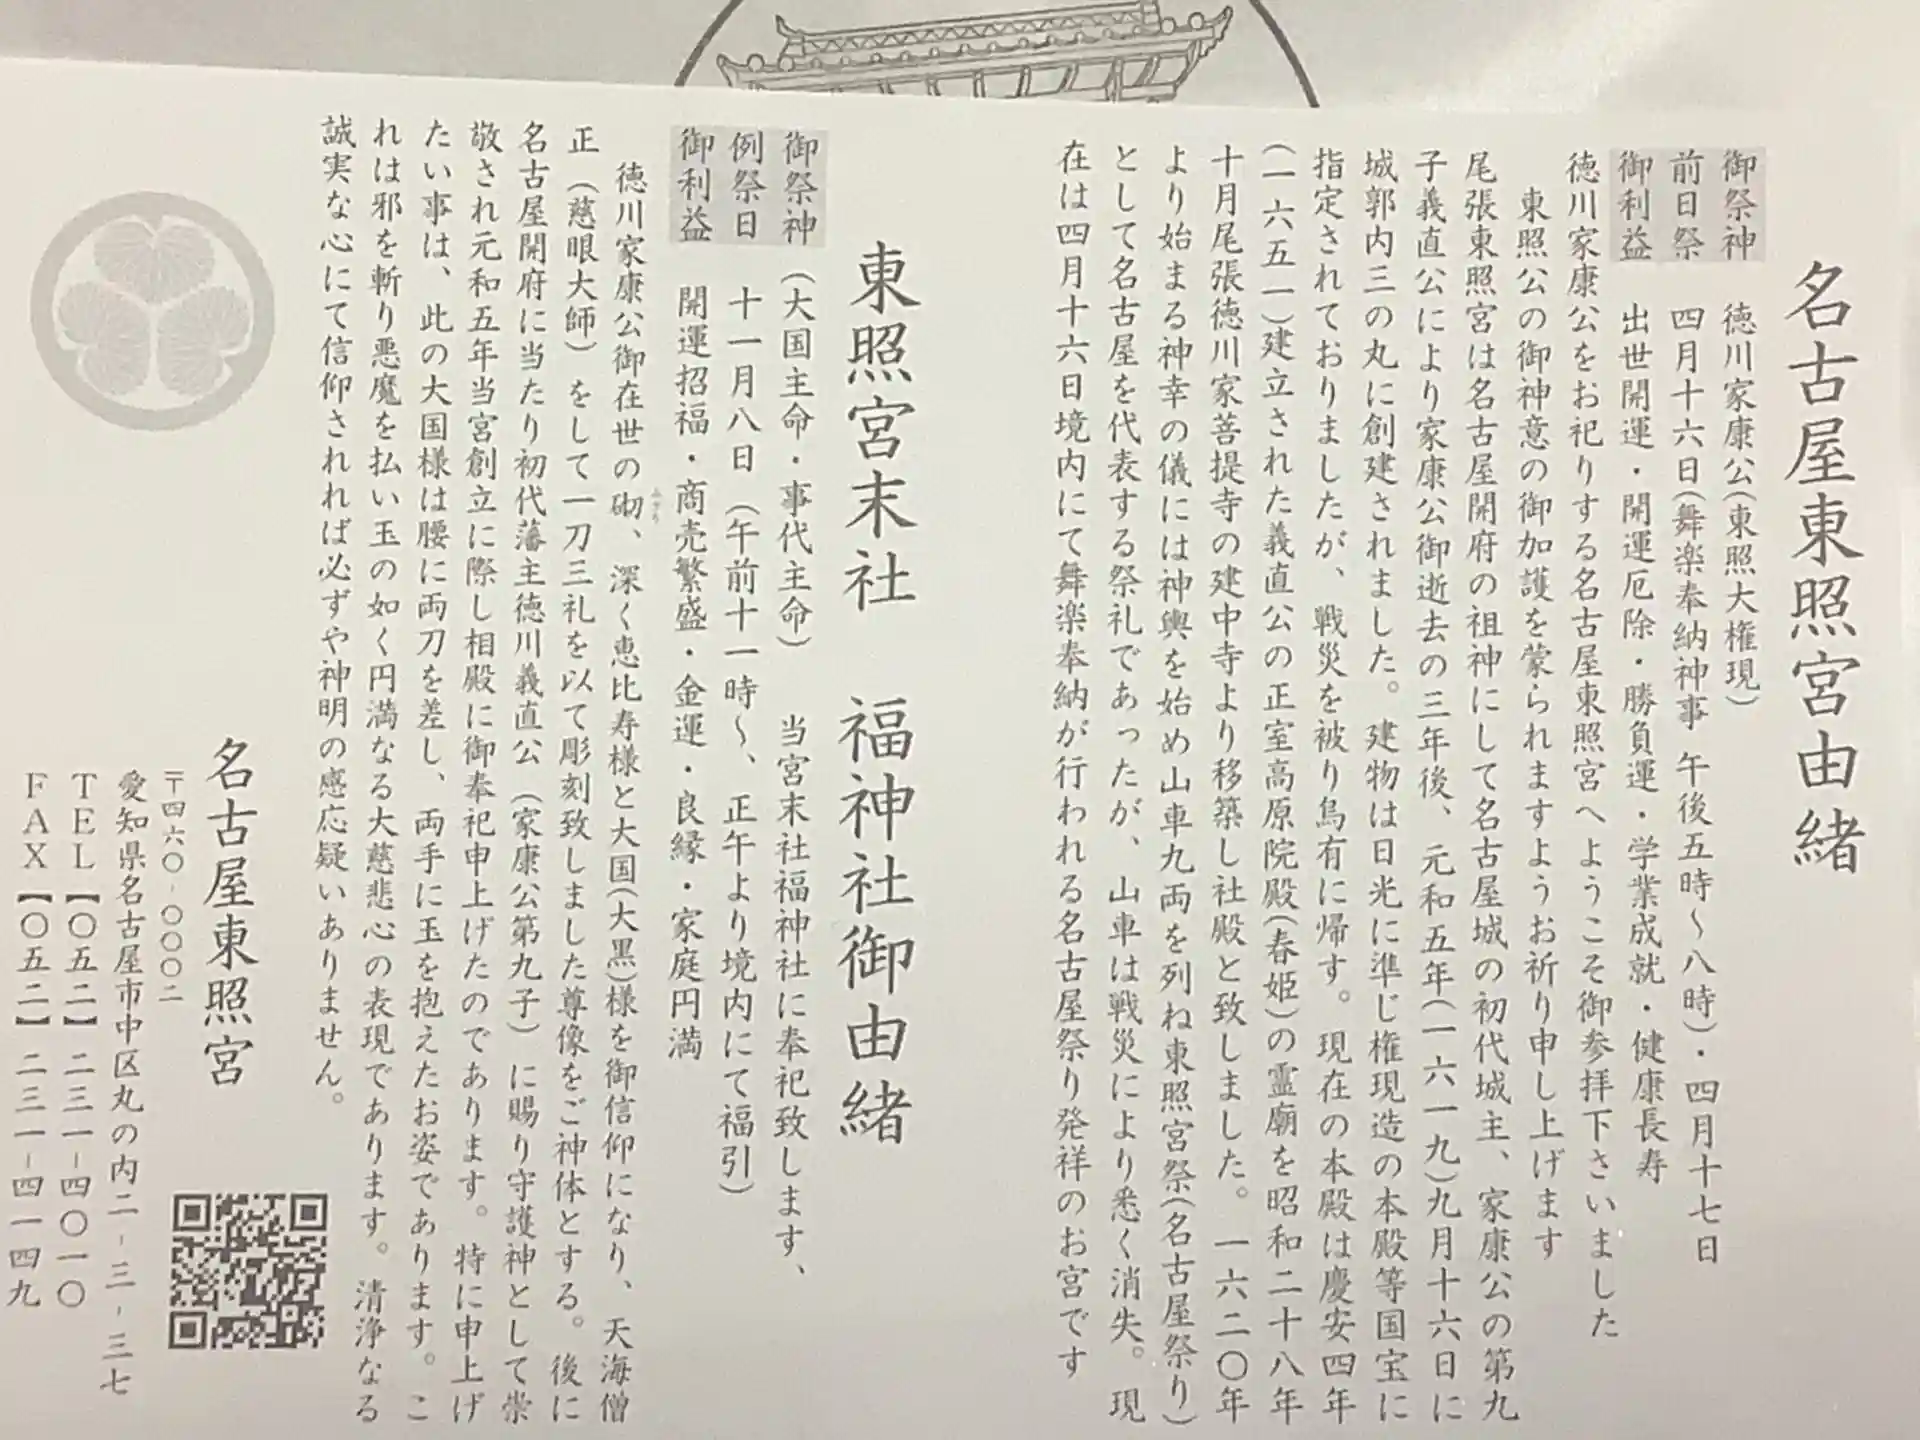 名古屋東照宮由緒
御祭神　徳川家康公(東照大権現)
前日祭　四月十六日(舞楽奉納神事 午後五時～八時)・四月十七日
御利益　出世開運・開運厄除・勝負運・学業成就・健康長寿
徳川家康公をお祀りする名古屋東照宮へようこそ御参拝下さいました
東照公の御神意の御加護を蒙られますようお祈り申し上げます
尾張東照宮は名古屋開府の祖神にして名古屋城の初代城主、家康公の第九
子義直公により家康公御逝去の三年後、元和五年(一六一九)九月十六日に
城郭内三の丸に創建されました。建物は日光に準じ権現造の本殿等国宝に
指定されておりましたが、戦災を被り烏有に帰す。現在の本殿は慶安四年
(一六五一)建立された義直公の正室高原院殿(春姫)の霊廟を昭和二十八年
十月尾張徳川家菩提寺の建中寺より移築し社殿と致しました。一六二〇年
より始まる神幸の儀には神輿を始め山車九両を列ね東照宮祭(名古屋祭り)
として名古屋を代表する祭礼であったが、山車は戦災により悉く消失。現
在は四月十六日境内にて舞楽奉納が行われる名古屋祭り発祥のお宮です
東照宮末社　福神社御由緒
御祭神（大国主命・事代主命）　当宮末社福神社に奉祀致します、
例祭日　十一月八日（午前十一時～、正午より境内にて福引）
御利益　開運招福・商売繁盛・金運・良縁・家庭円満
徳川家康公御在世の砌、深く恵比寿様と大国(大黒)様を御信仰になり、天海僧
正（慈眼大師）をして一刀三礼を以て彫刻致しました尊像をご神体とする。後に
名古屋開府に当たり初代藩主徳川義直公（家康公第九子）に賜り守護神として崇
敬され元和五年当宮創立に際し相殿に御奉祀申上げたのであります。特に申上げ
たい事は、此の大国様は腰に両刀を差し、両手に玉を抱えたお姿であります。こ
れは邪を斬り悪魔を払い玉の如く円満なる大慈悲心の表現であります。清浄なる
誠実な心にて信仰されれば必ずや神明の感応疑いありません。
名古屋東照宮
〒四六〇-〇〇〇二
愛知県名古屋市中区丸の内二-三-三七
ＴＥＬ【〇五二】二三一-四〇一〇
ＦＡＸ【〇五二】二三一-四一四九